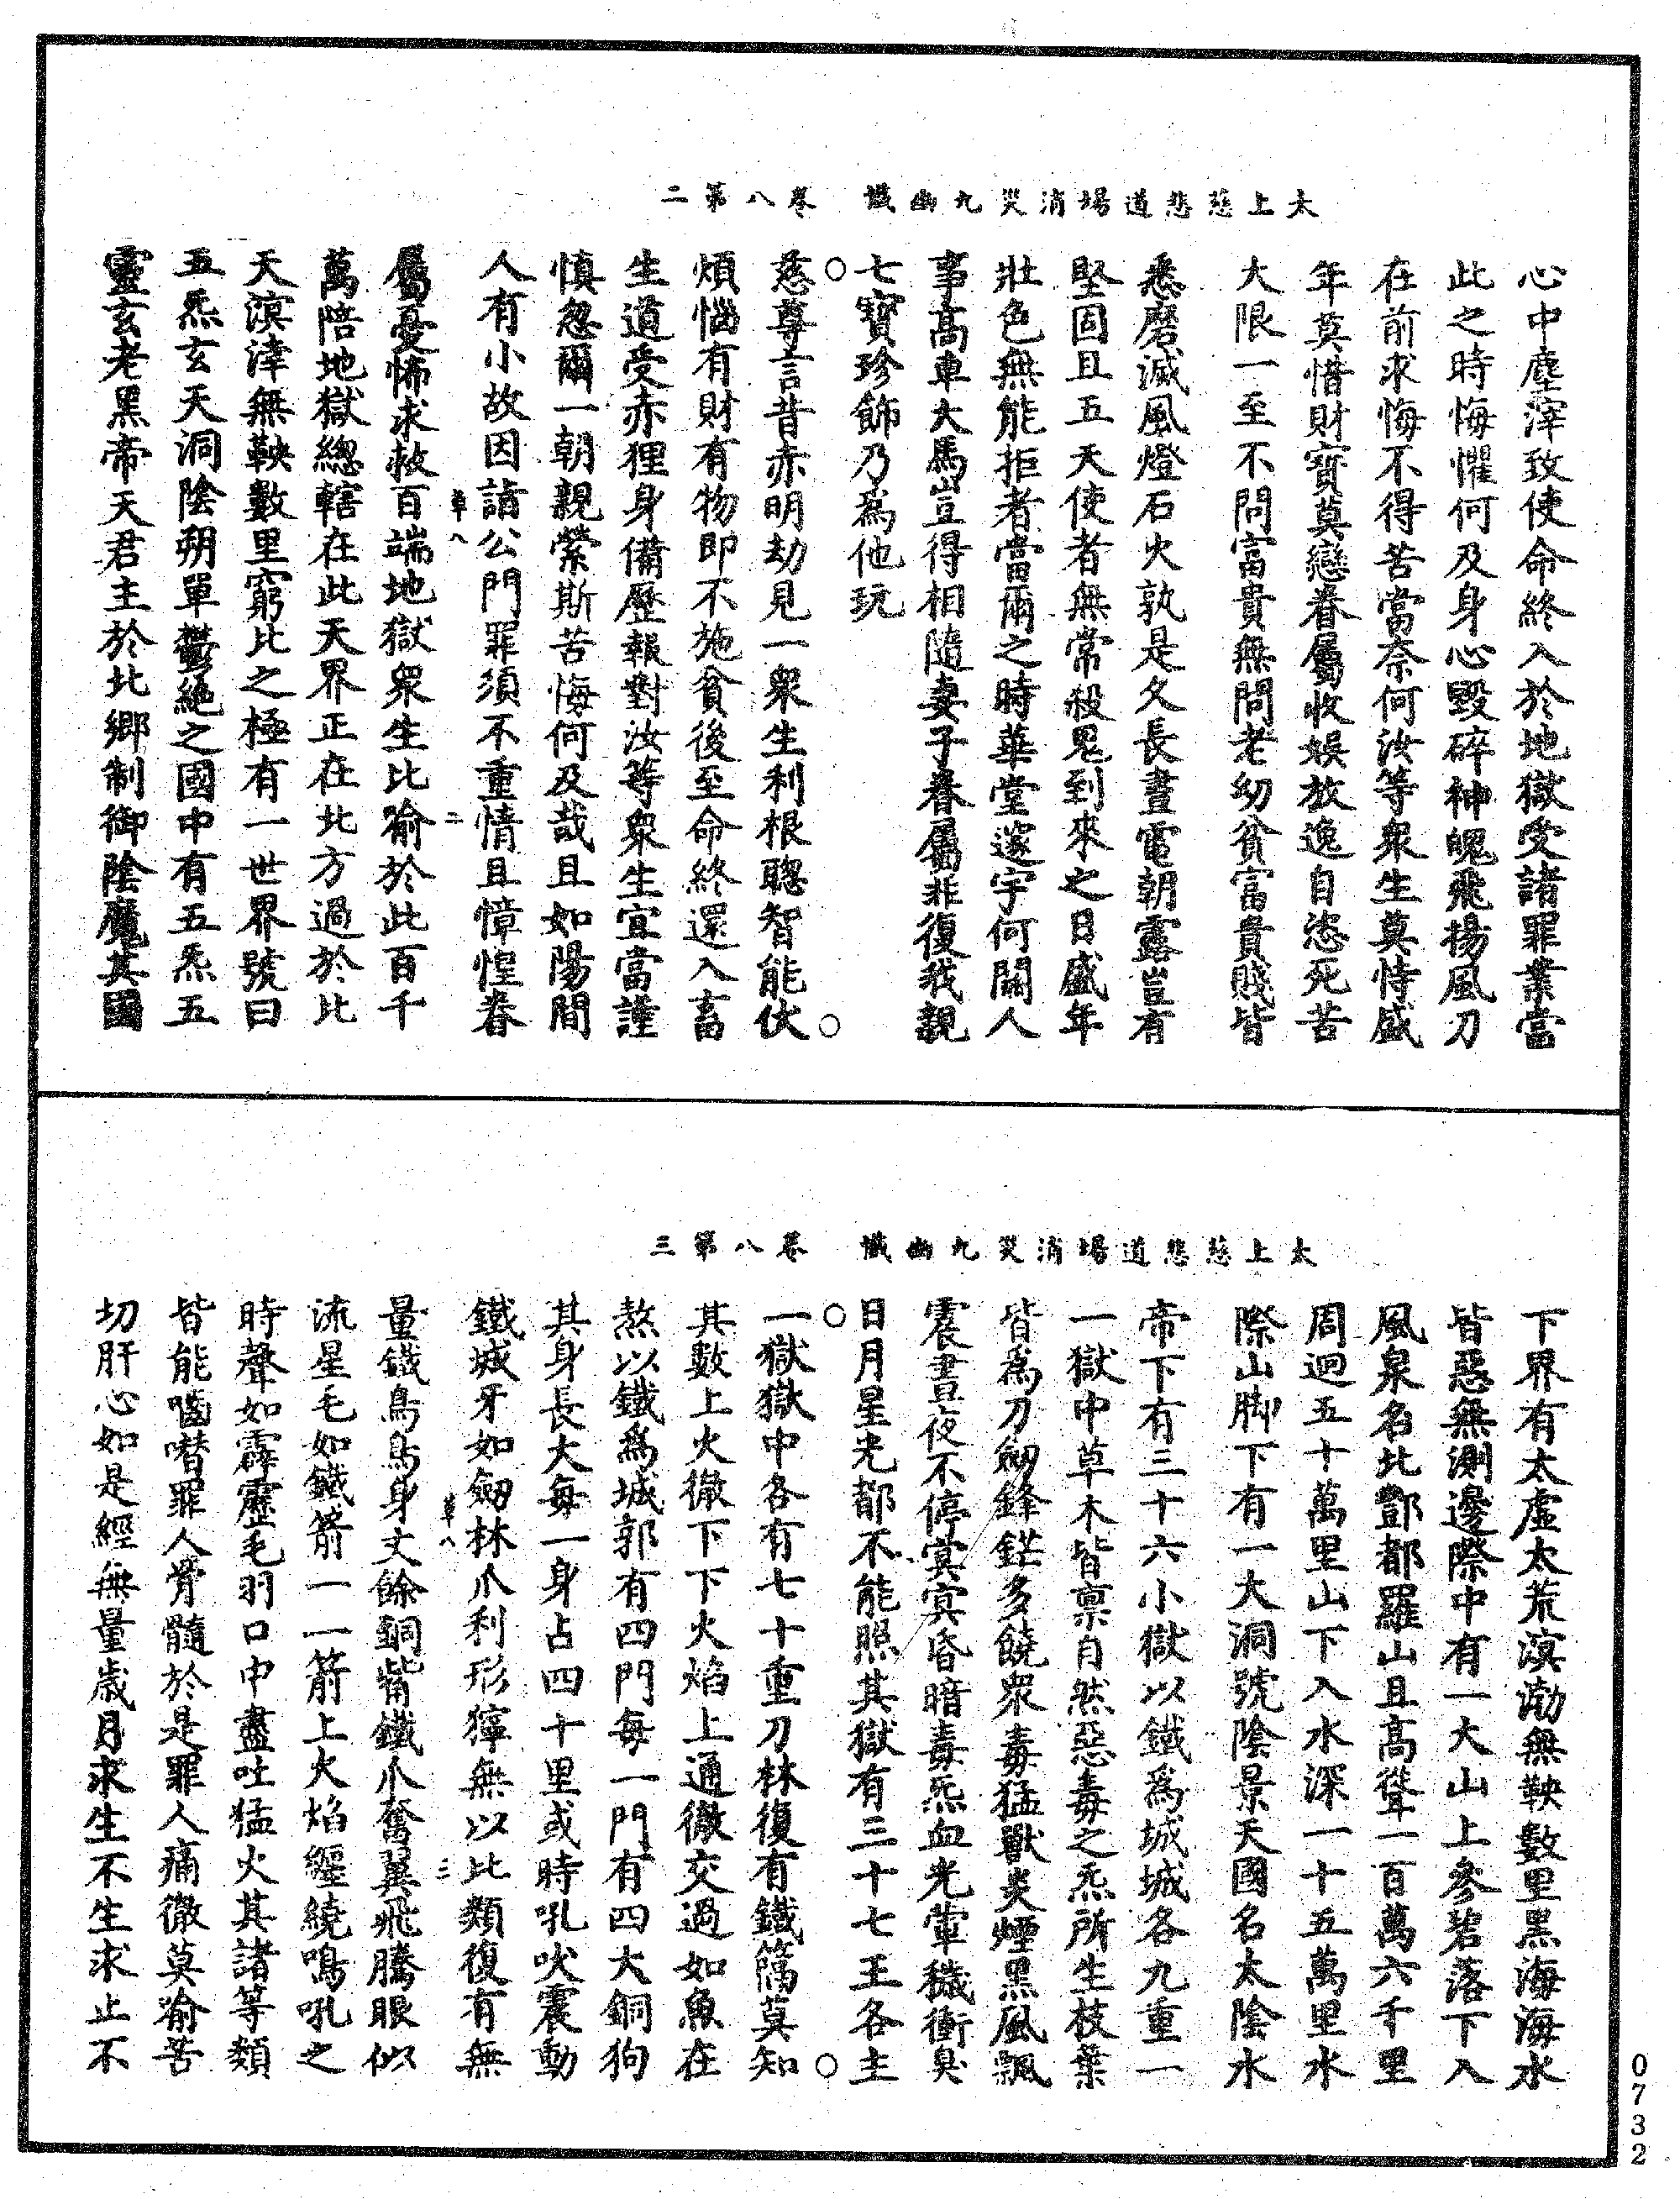 太上慈悲道場消災九幽懺　卷八第二
心中塵滓致使命終入於地獄受諸罪業當
此之時悔懼何及身心毀碎神魄飛揚風刀
在前求悔不得苦當奈何汝等衆生莫恃盛
年莫惜財寶莫戀眷屬收娛放逸自恣死苦
大限一至不問富貴無問老幼貧富貴賤皆
悉磨滅風燈石火孰是久長晝電朝露豈有
堅固且五天使者無常殺鬼到來之日盛年
壯色無能拒者當爾之時華堂邃宇何關人
事高車大馬豈得相隨妻子眷屬非復我親
七寶珍飾乃為他玩
慈尊言昔赤明劫見一衆生利根聰智能伏
煩惱有財有物即不施貧後至命終還入畜
生道受赤狸身備歷報對汝等衆生宜當謹
慎忽爾一朝親縈斯苦悔何及哉且如陽間
人有小故因詣公門罪須不重情且慞惶眷
草八　二
屬憂怖求救百端地獄衆生比喻於此百千
萬陪地獄總轄在此天界正在北方過於比
天溟涬無鞅數里窮比之極有一世界號曰
五炁玄天洞陰朔單鬱絕之國中有五炁五
靈玄老黑帝天君主於北鄉制御陰魔其國
太上慈悲道場消災九幽懺　卷八第三
下界有太虛太荒溟渤無鞅數里黑海海水
皆惡無測邊際中有一大山上參碧落下入
風泉名北酆都羅山且高聳一百萬六千里
周迴五十萬里山下入水深一十五萬里水
際山脚下有一大洞號陰景天國名太陰水
帝下有三十六小獄以鐵為城城各九重一
一獄中草木皆稟自然惡毒之炁所生枝葉
皆為刀劒鋒鋩多饒衆毒猛獸炎煙黑風飄
震晝夜不停冥冥昏暗毒炁血光葷穢衝臭
日月星光都不能照其獄有三十七王各主
一獄獄中各有七十重刀林復有鐵籬莫知
其數上火徹下下火焰上通徹交過如魚在
熬以鐵為城郭有四門每一門有四大銅狗
其身長大每一身占四十里或時吼吠震動
鐵城牙如劒林爪利形獰無以比類復有無
草八　三
量鐵鳥鳥身丈餘銅觜鐵爪奮翼飛騰眼似
流星毛如鐵箭一一箭上火焰纏繞鳴吼之
時聲如霹靂毛羽口中盡吐猛火其諸等類
皆能嚙嘈罪人骨髓於是罪人痛徹莫喻苦
切肝心如是經無量歲月求生不生求止不
0732